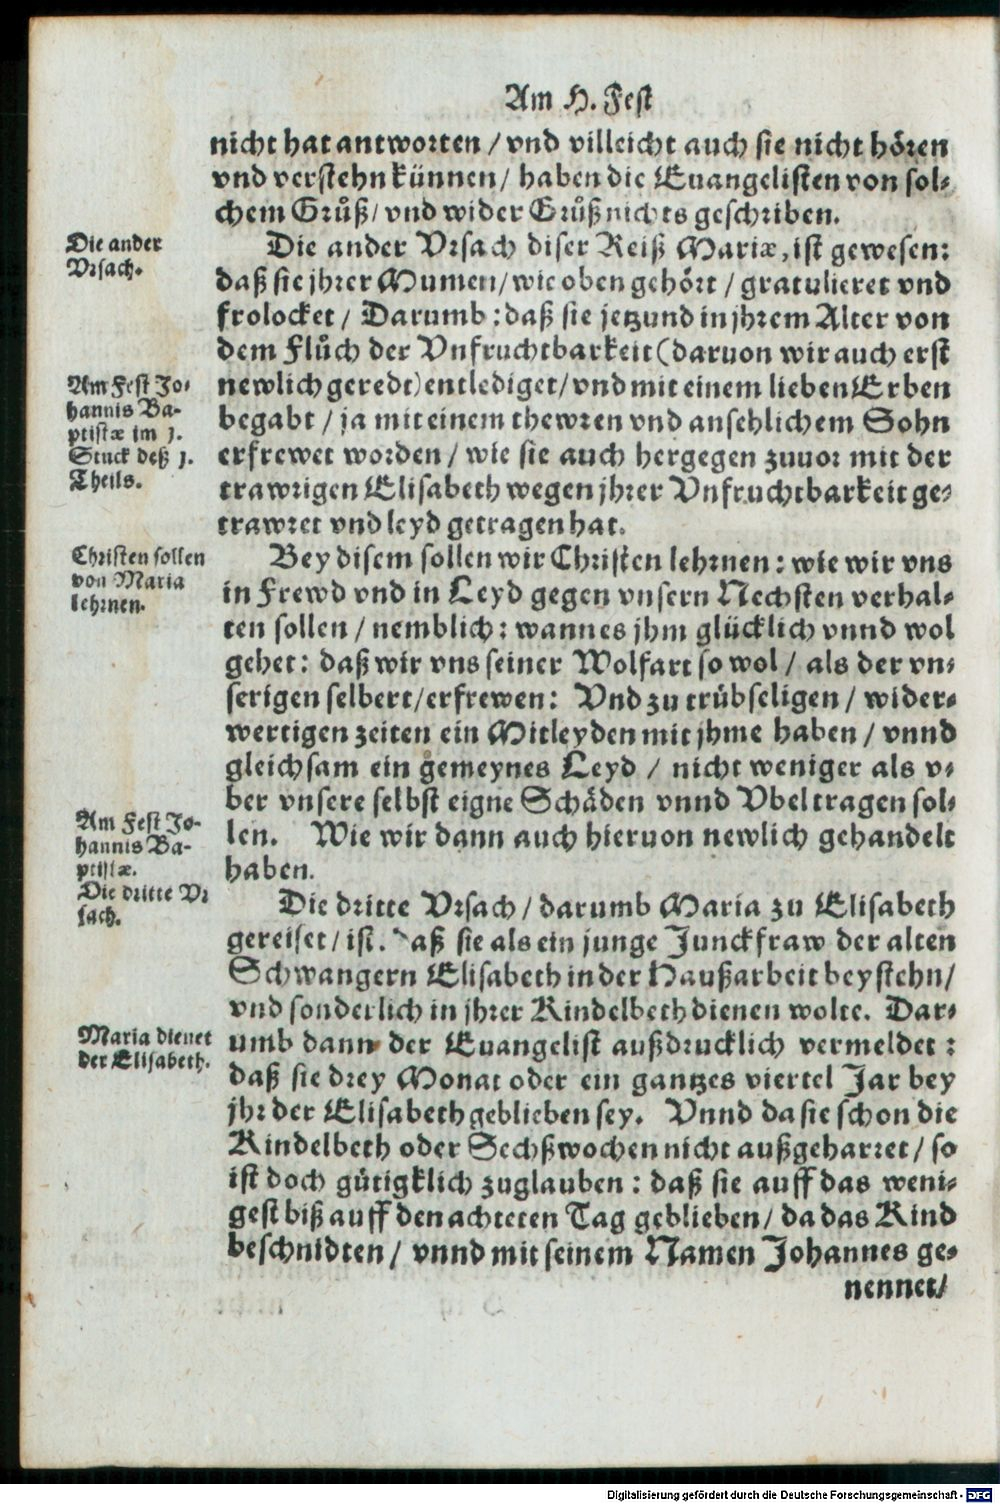 Am H. Fest
nicht hat antworten / vnd villeicht auch sie nicht hören
vnd verstehn künnen / haben die Euangelisten von sol-
chem Grůß / vnd wider Grůß nichts geschriben.
Die ander
Vrsach.
Die ander Vrsach diser Reiß Mariæ, ist gewesen:
daß sie jhrer Mumen / wie oben gehört / gratulieret vnd
frolocket / Darumb : daß sie jetzund in jhrem Alter von
dem Flůch der Vnfruchtbarkeit (daruon wir auch erst
Am Fest Jo-
hannis Ba-
ptistæ im 1.
Stuck deß 1.
Theils.
newlich geredt) entlediget / vnd mit einem lieben Erben
begabt / ja mit einem thewren vnd ansehlichem Sohn
erfrewet worden / wie sie auch hergegen zuuor mit der
trawrigen Elisabeth wegen jhrer Vnfruchtbarkeit ge-
trawret vnd leyd getragen hat.
Christen sollen
von Maria
lehrnen.
Bey disem sollen wir Christen lehrnen : wie wir vns
in Frewd vnd in Leyd gegen vnsern Nechsten verhal-
ten sollen / nemblich : wann es jhm glücklich vnnd wol
gehet : daß wir vns seiner Wolfart so wol / als der vn-
serigen selbert / erfrewen : Vnd zu trübseligen / wider-
wertigen zeiten ein Mitleyden mit jhme haben / vnnd
gleichsam ein gemeynes Leyd / nicht weniger als v-
ber vnsere selbst eigne Schäden vnnd Vbel tragen sol-
Am Fest Jo-
hannis Ba-
ptistæ.
len. Wie wir dann auch hieruon newlich gehandelt
haben.
Die dritte Vr
sach.
Die dritte Vrsach / darumb Maria zu Elisabeth
gereiset / ist. aß sie als ein junge Junckfraw der alten
Schwangern Elisabeth in der Haußarbeit beystehn /
vnd sonderlich in jhrer Kindelbeth dienen wolte. Dar-
Maria dienet
der Elisabeth.
umb dann der Euangelist außdrucklich vermeldet :
daß sie drey Monat oder ein gantzes viertel Jar bey
jhr der Elisabeth geblieben sey. Vnnd da sie schon die
Kindelbeth oder Sechßwochen nicht außgeharret / so
ist doch gütigklich zuglauben : daß sie auff das weni-
gest biß auff den achteten Tag geblieben / da das Kind
beschnidten / vnnd mit seinem Namen Johannes ge-
nennet /
Digitalisierung gefördert durch die Deutsche Forschungsgemeinschaft - DFG